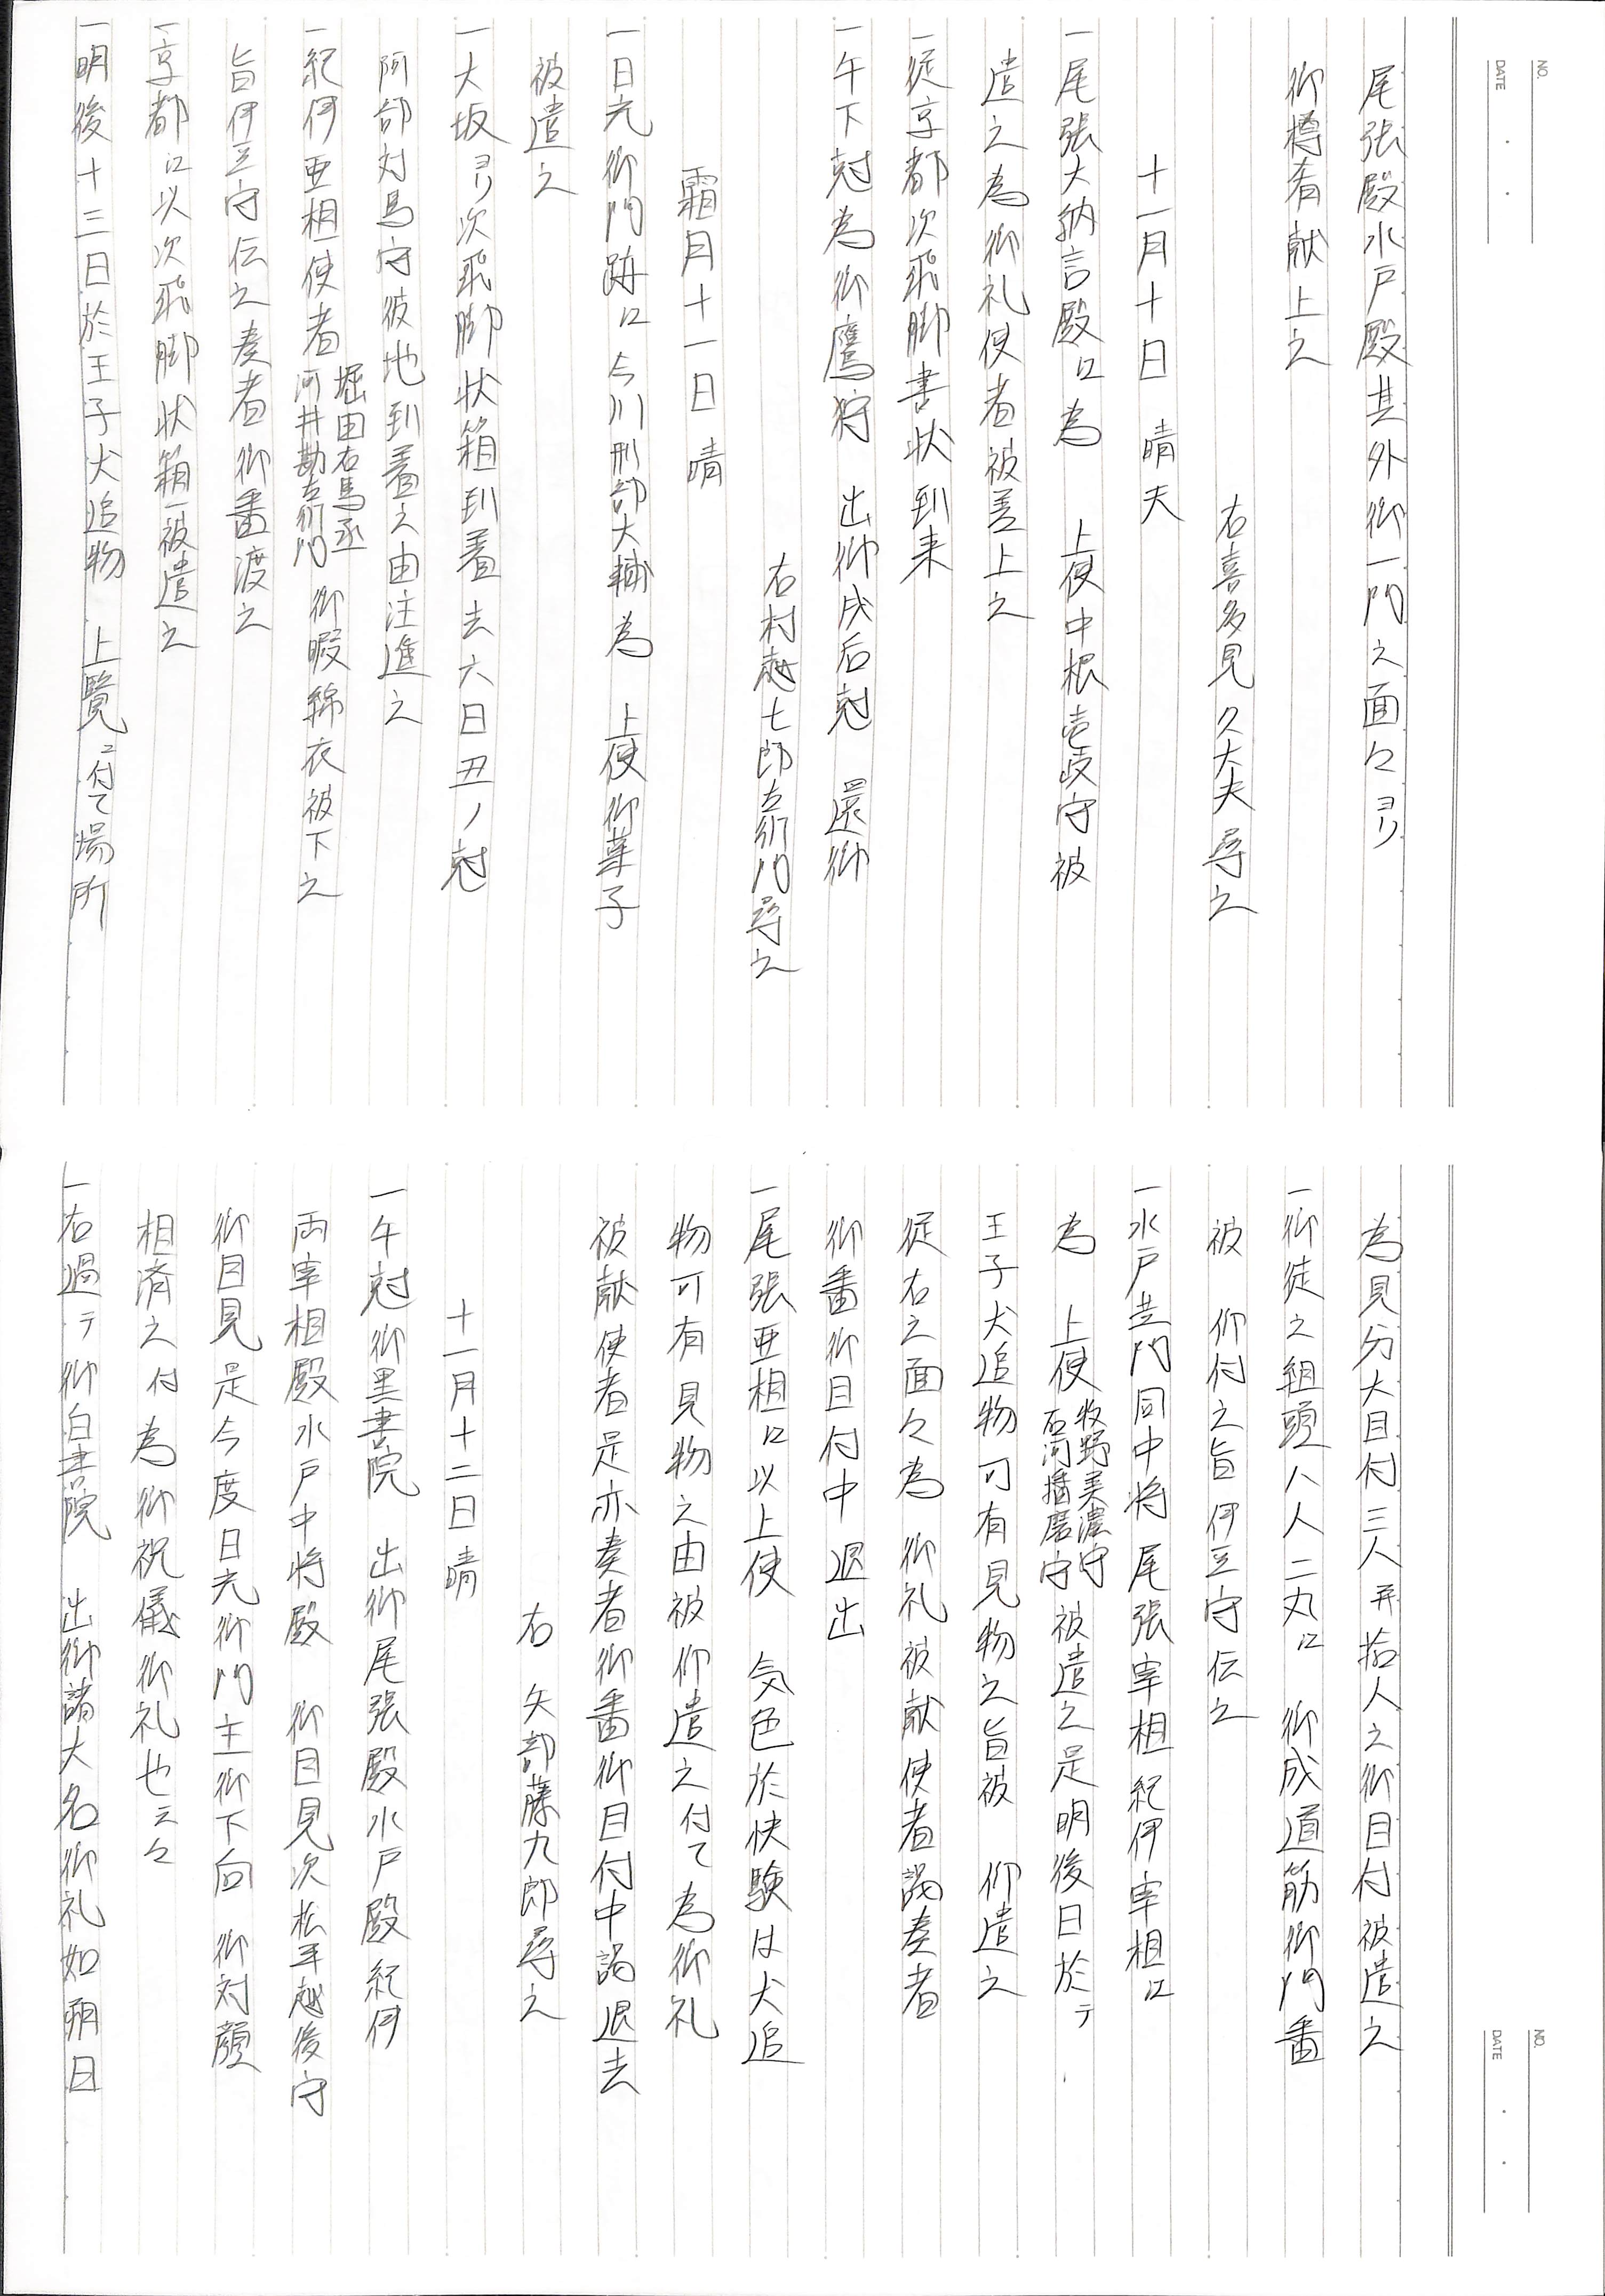 NO.
DATE
尾張殿水戸殿其外御一門之面々ヨリ
御樽肴献上之
右喜多見久大夫尋之
十一月十日 晴天
一尾張大納言殿江為 上使中根壱岐守被
遣之為御礼使者被差上之
一従京都次飛脚書状到来
一午下尅為御鷹狩 出御戌后尅 還御
右村越七郎左衛門尋之
霜月十一日 晴
一日光御門跡江今川刑部大輔為 上使御菓子
被遣之
一大坂ヨリ次飛脚状箱到着去六日丑ノ尅
阿部対馬守彼地到着之由注進之
一紀伊亜相使者堀田右馬丞 河井勘左衛門 御暇綿衣被下之
旨伊豆守伝之奏者御番渡之
一京都江以次飛脚状箱一被遣之
一明後十三日於王子犬追物 上覧ニ付て場所
NO.
DATE
為見分大目付三人并拾人之御目付被遣之
一御徒之組頭八人二丸江 御成道筋御門番
被 仰付之旨伊豆守伝之
一水戸黄門同中将尾張宰相紀伊宰相江
為 上使牧野美濃守 石河播磨守被遣之是明後日於テ
王子犬追物可有見物之旨被 仰遣之
従右之面々為御礼被献使者謁奏者
御番御目付中退出
一尾張亜相江以上使 気色於快験は犬追
物可有見物之由被仰遣之付て為御礼
被献使者是亦奏者御番御目付中謁退去
右 矢部藤九郎尋之
十一月十二日晴
一午尅御黒書院 出御尾張殿水戸殿紀伊
両宰相殿水戸中将殿 御目見次松平越後守
御目見是今度日光御門主御下向 御対顔
相済之付為御祝儀御礼也云々
一右過テ御白書院 出御諸大名御礼如朔日